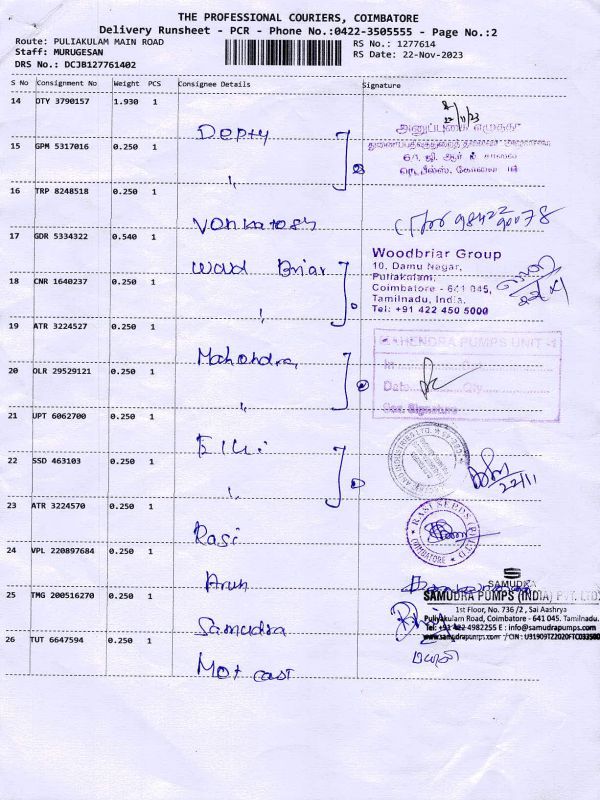 THE PROFESSIONAL COURIERS, COIMBATORE
Delivery Runsheet - PCR - Phone No.:0422-3505555 - Page No.:2
Route: PULIAKULAM MAIN ROAD
RS No.: 1277614
Staff: MURUGESAN
RS Date: 22-Nov-2023
DRS No.: DCJB127761402
S No Consignment No Weight PCS Consignee Details Signature
14 DTY 3790157 1.930 1
22/11/23
Depty
15 GPM 5317016 0.250 1
"
16 TRP 8248518 0.250 1
Vonkatosh
17 GDR 5334322 0.540 1
Wood Briar
Woodbriar Group
10, Damu Nagar,
Puliakulam,
Coimbatore - 641 045,
Tamilnadu, India.
Tel: +91 422 450 5000
18 CNR 1640237 0.250 1
"
19 ATR 3224527 0.250 1
Mahondra
MAHENDRA PUMPS UNIT
Date Qty
Signature
20 OLR 29529121 0.250 1
"
21 UPT 6062700 0.250 1
Elgi
22 SSD 463103 0.250 1
"
22/11
23 ATR 3224570 0.250 1
Rasi
RASI SEEDS (P) LTD
COIMBATORE
24 VPL 220897684 0.250 1
Arun
25 TMG 200516270 0.250 1
Samudra
SAMUDRA
SAMUDRA PUMPS (INDIA) PVT. LTD
1st Floor, No. 736/2, Sai Aashrya
Puliyakulam Road, Coimbatore - 641 045. Tamilnadu.
Tel: +91 422 4982255 E : info@samudrapumps.com
www.samudrapumps.com
26 TUT 6647594 0.250 1
Mot cast